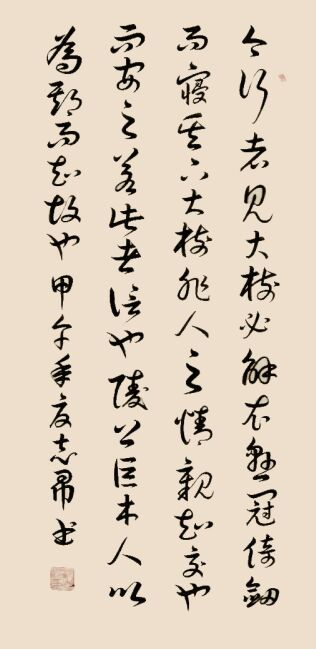 今行者見大樹必解衣懸冠倚劍
而寢其下大樹非人之情親知交也
而安之若此者信也陵上巨木人以
為期而知故也甲午年夏志昂书